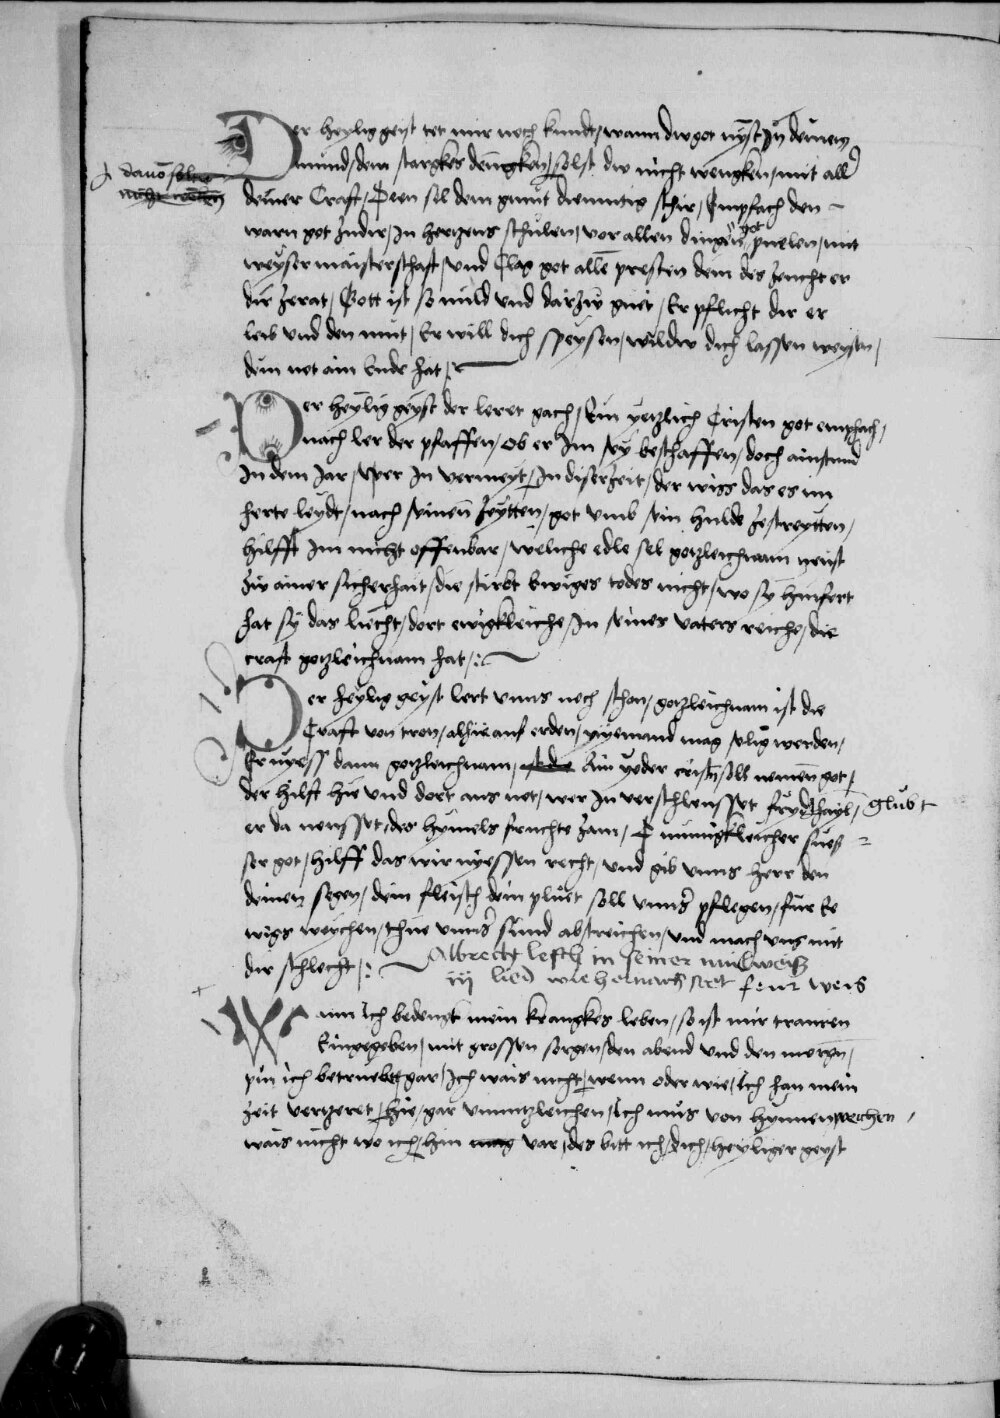 Der heylig geist tet mir noch kundt / wann dw got nyst in deinem
davo soltu
nicht wencken
mund / dem starckes dencken / solst dw nicht wengken / mit aller
deiner Craft / Dein sel dem gmut diemutig schir / Empfach den
warn got zu dir / In hertzens schulen / vor allen dingen got puelen / mit
weyser maisterschaft / Und Clag got alle presten dein des zeucht er
dir zerat / Gott ist so mild und darzw guet / Er pflicht dir er
leib und den mut / Er will dich speysen / wildw dich lassen weysen /
dein not ain ende hat /:
Der heylig geyst der leret gach / Ein yetzlich Cristen got empfach /
nach ler der pfaffen / ob er im sy beschaffen / doch ainstund
In dem Jar / Wer In vermeyt / In diser zeit / der wiss das es im
herte leydt / nach seinen zeytten / got umb sein hulde zestreytten /
hilfft im nicht offenbar / weliche edle sel gotzleichnam neust
zw ainer sicherhait / die stirbt ewiges todes nicht / wo sy hinfert
hat sy das liecht / dort ewigkleiche / In seines vaters reiche / die
craft gotzleichnam hat /:
Der heylig geyst lert unns noch schon / gotzleichnam ist die
Craft von tron / alhie auf erden / nyemand mag selig werden /
Er nyess dann gotzleichnam / Ain yeder crist soll nemen got /
der hilft hie und dort aus not / wer In verschleusset frydhayl / glubt
er da neusset / des hymels fruchte zam / O mynigkleicher sues
ser got / hilff das wir nyessen recht / und gib unns herr den
deinen segen / dein fleisch dein pluet soll unns pflegen / fur e
wigs weychen / thue unns sund abstreichen / und mach uns mit
dir schlecht /:
Albrecht lesch in seiner mülweiß
iij lied wie hernach stet feur weis
Wann Ich bedengk mein krangkes leben / so ist mir trauren
Eingegeben / mit grossen sorgen / den abend und den morgn /
pin ich betruebt gar / Ich wais nicht / wenn oder wie / Ich han mein
zeit vertzeret / hie / gar unnutzleichen / Ich mus von hynnen weichen /
wais nicht wo ich / hin var / des bitt ich / dich / heyliger geyst